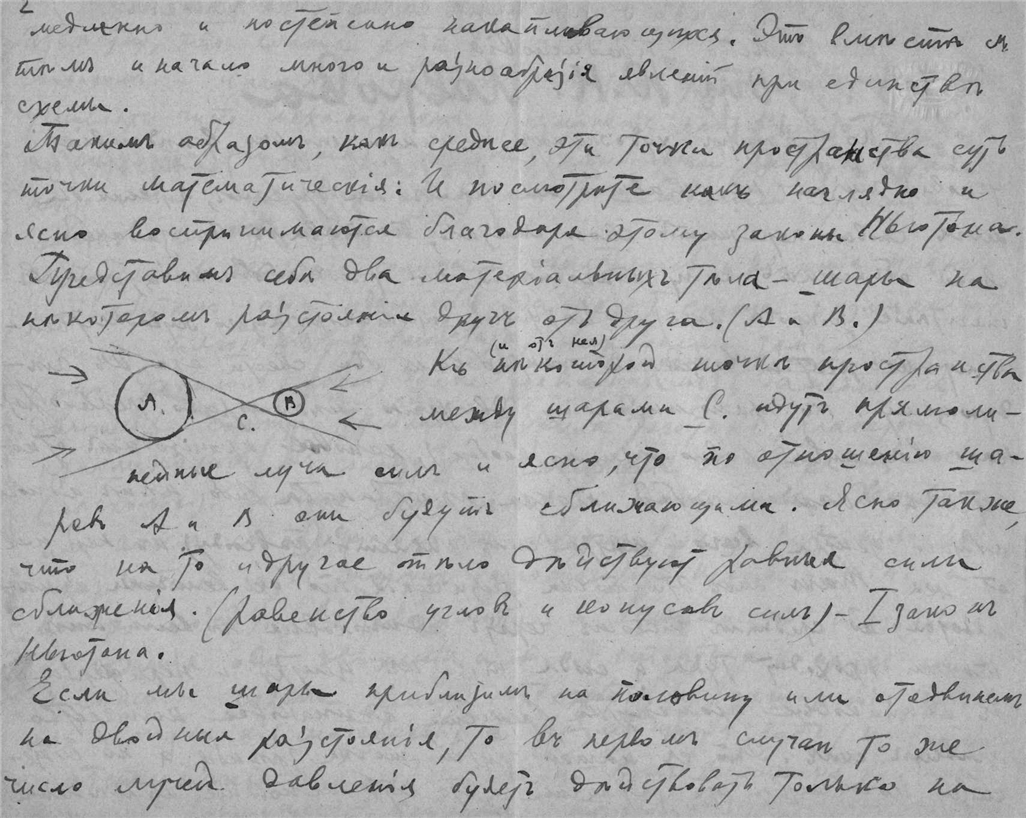 2
медленно и постепенно накапливающихся. Это вместѣ съ
тѣмъ и начало много и разнообразія явленій при единствѣ
схемы.
Такимъ образомъ, какъ среднее, эти точки пространства суть
точки математическія: И посмотрите какъ наглядно и
ясно воспринимаются благодаря этому законы Ньютона.
Представимъ себѣ два матеріальныхъ тѣла – шары на
нѣкоторомъ разстояніи другъ отъ друга. (А и В.)
(и отъ нея)
Къ нѣкоторой точкѣ пространства
А. В С.
между шарами С. идутъ прямоли-
нейные лучи силъ и ясно, что по отношенію ша-
ровъ А и В они будутъ сближающими. Ясно также,
что на то и другое тѣло дѣйствуютъ равныя силы
сближенія. (равенство угловъ и конусовъ силъ) – I законъ
Ньютона.
Если мы шары приблизимъ на половину или отодвинемъ
на двойныя разстоянія, то въ первомъ случаѣ то же
число лучей давленія будетъ дѣйствовать только на